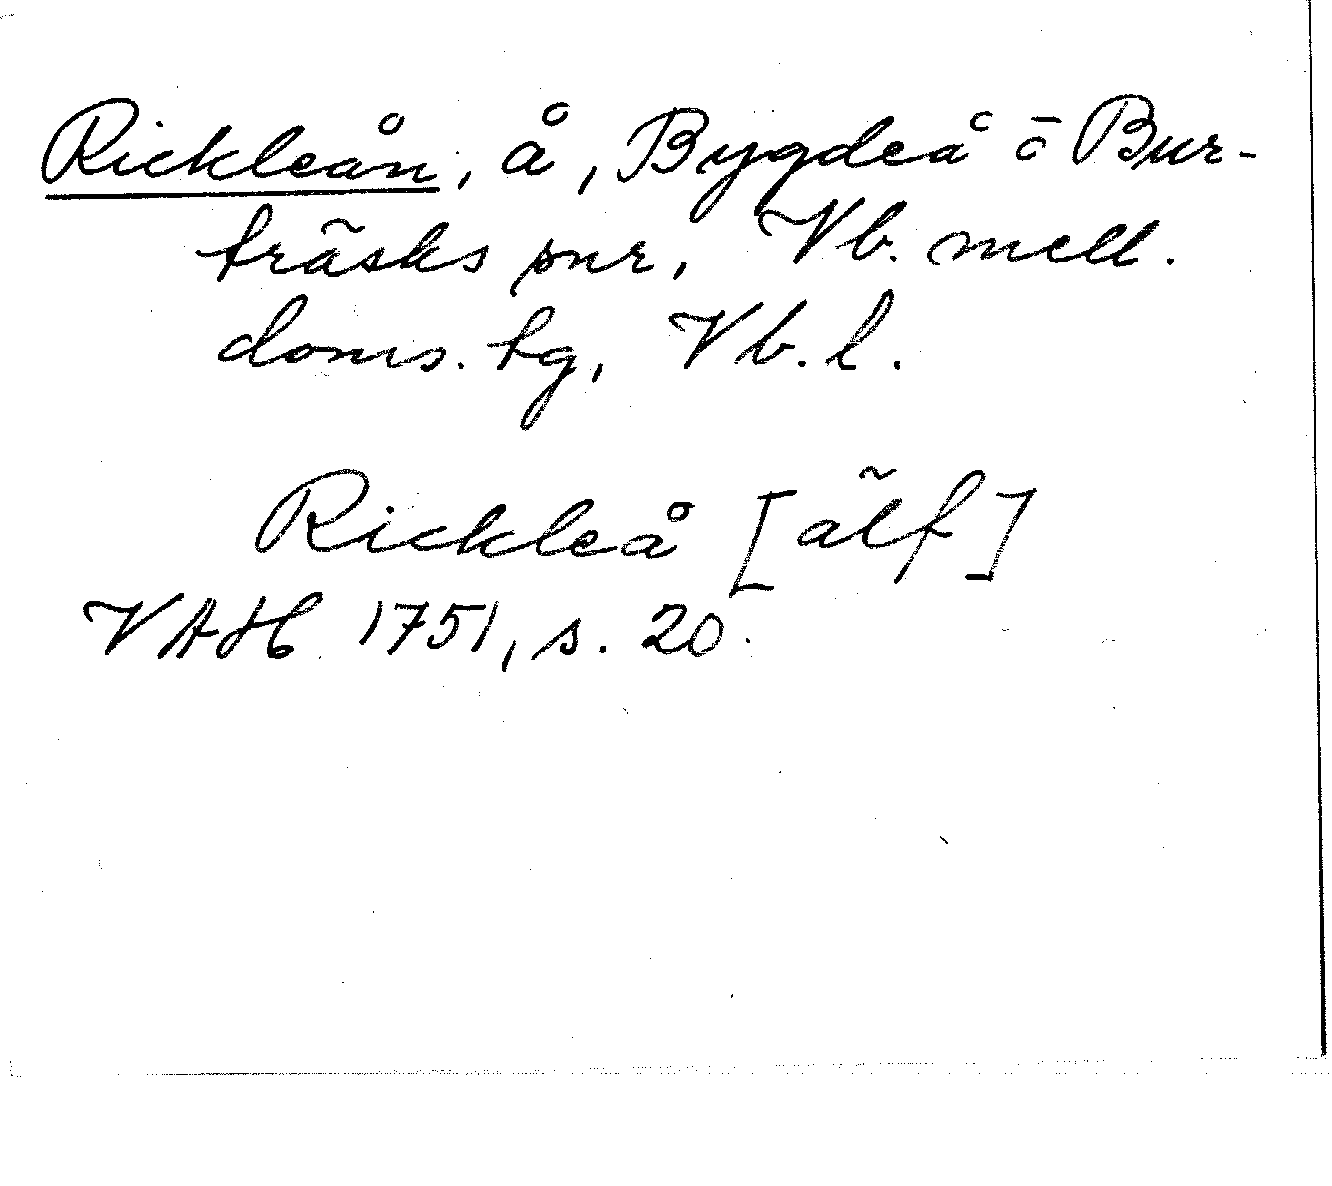 Rickleån, å, Bygdeå o Bur-
träsks snr, Vb. mell.
doms. tg, Vb. l.
Rickleå [älf]
VAH 1751, s. 20.